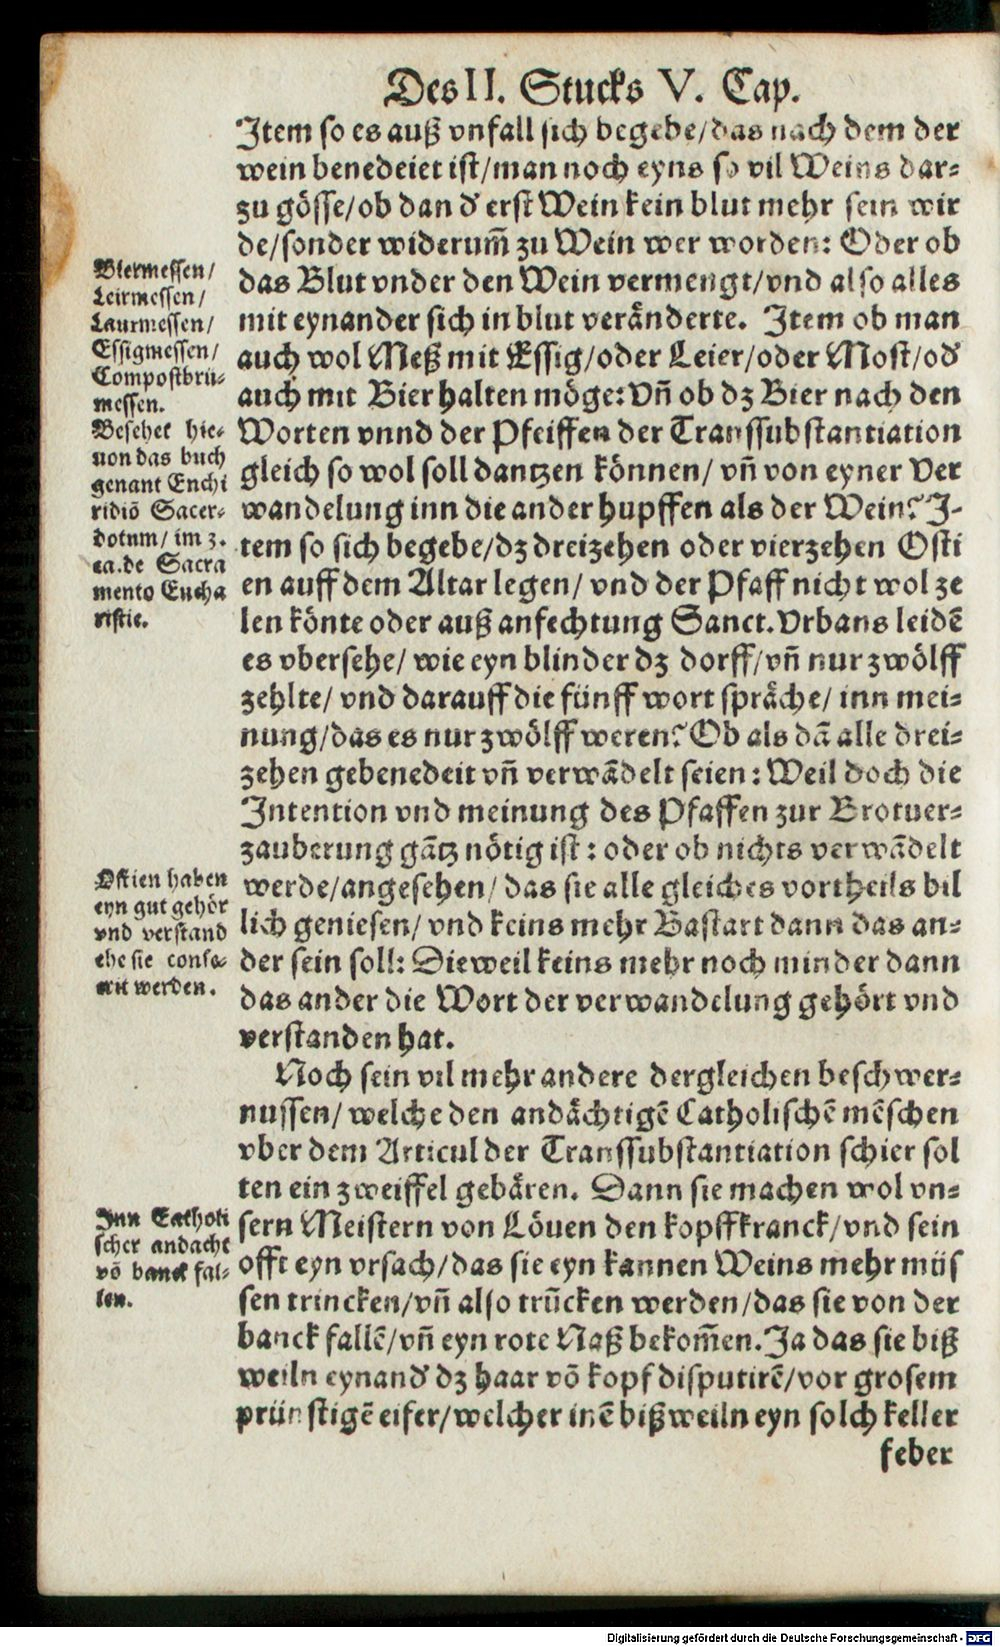 Des II. Stucks V. Cap.
Item so es auß vnfall sich begebe/das nach dem der
wein benedeiet ist/man noch eyns so vil Weins dar-
zu gösse/ob dan d' erst Wein kein blut mehr sein wir
de/sonder widerum̃ zu Wein wer worden: Oder ob
das Blut vnder den Wein vermengt/vnd also alles
mit eynander sich in blut veränderte. Item ob man
auch wol Meß mit Essig/oder Leier/oder Most/od'
auch mit Bier halten möge: Vñ ob dz Bier nach den
Worten vnnd der Pfeiffen der Transsubstantiation
gleich so wol soll dantzen können/ vñ von eyner Ver
wandelung inn die ander hupffen als der Wein? I-
tem so sich begebe/dz dreizehen oder vierzehen Osti
en auff dem Altar legen/ vnd der Pfaff nicht wol ze
len könte oder auß anfechtung Sanct. Vrbans leidē
es vbersehe/ wie eyn blinder dz dorff/vñ nur zwölff
zehlte/ vnd darauff die fünff wort spräche/ inn mei-
nung/das es nur zwölff weren? Ob als dā alle drei-
zehen gebenedeit vñ verwādelt seien: Weil doch die
Intention vnd meinung des Pfaffen zur Brotuer-
zauberung gātz nötig ist: oder ob nichts verwādelt
werde/angesehen/ das sie alle gleiches vortheils bil
lich geniesen/ vnd keins mehr Bastart dann das an-
der sein soll: Dieweil keins mehr noch minder dann
das ander die Wort der verwandelung gehört vnd
verstanden hat.
Noch sein vil mehr andere dergleichen beschwer-
nussen/ welche den andächtigē Catholischē mēschen
vber dem Articul der Transsubstantiation schier sol
ten ein zweiffel gebären. Dann sie machen wol vn-
sern Meistern von Löuen den kopff kranck/vnd sein
offt eyn vrsach/das sie eyn kannen Weins mehr müs
sen trincken/vñ also trūcken werden/das sie von der
banck fallē/vñ eyn rote Naß bekom̃en. Ja das sie biß
weiln eynand' dz haar vō kopf disputirē/vor grosem
prünstigē eifer/welcher inē bißweiln eyn solch keller
feber
Biermessen/
Leirmessen/
Laurmessen/
Essigmessen/
Compostbrü-
messen.
Besehet hie-
uon das buch
genant Enchi
ridiō Sacer-
dotum/ im 3.
ca. de Sacra
mento Eucha
ristie.
Ostien haben
eyn gut gehör
vnd verstand
ehe sie conse-
crit werden.
Inn Catholi
scher andacht
vō banck fal-
len.
Digitalisierung gefördert durch die Deutsche Forschungsgemeinschaft - DFG